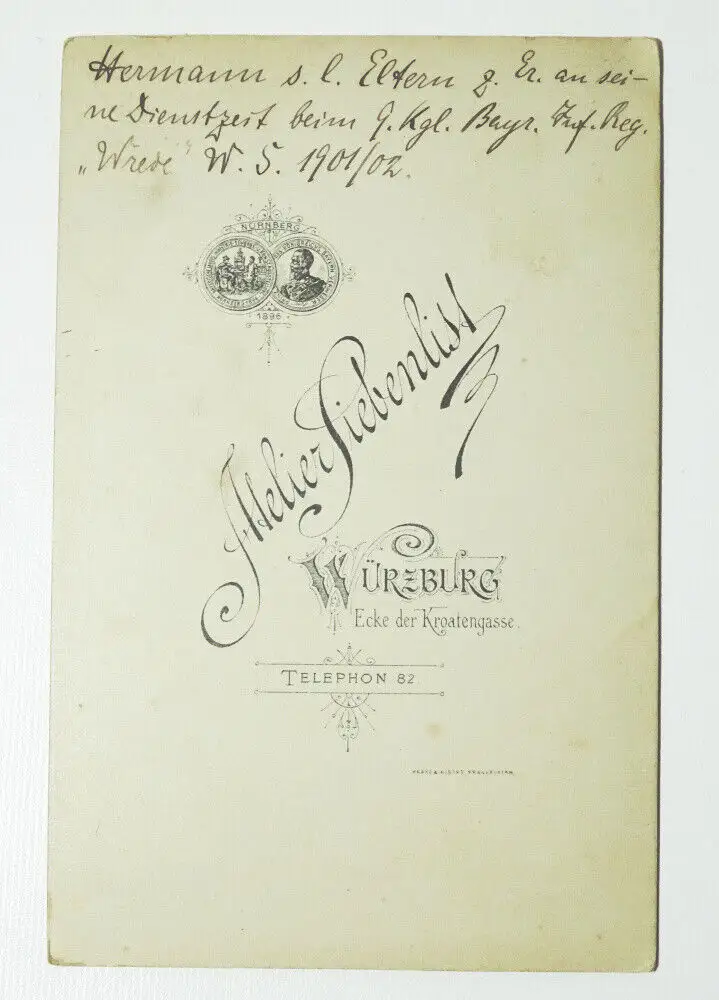 Hermann s. l. Eltern z. Er. an sei-
ne Dienstzeit beim 9. Kgl. Bayr. Inf. Reg.
„Wrede" W. S. 1901/02.
NÜRNBERG
1896
Atelier Siebenlist
WÜRZBURG
Ecke der Kroatengasse.
TELEPHON 82